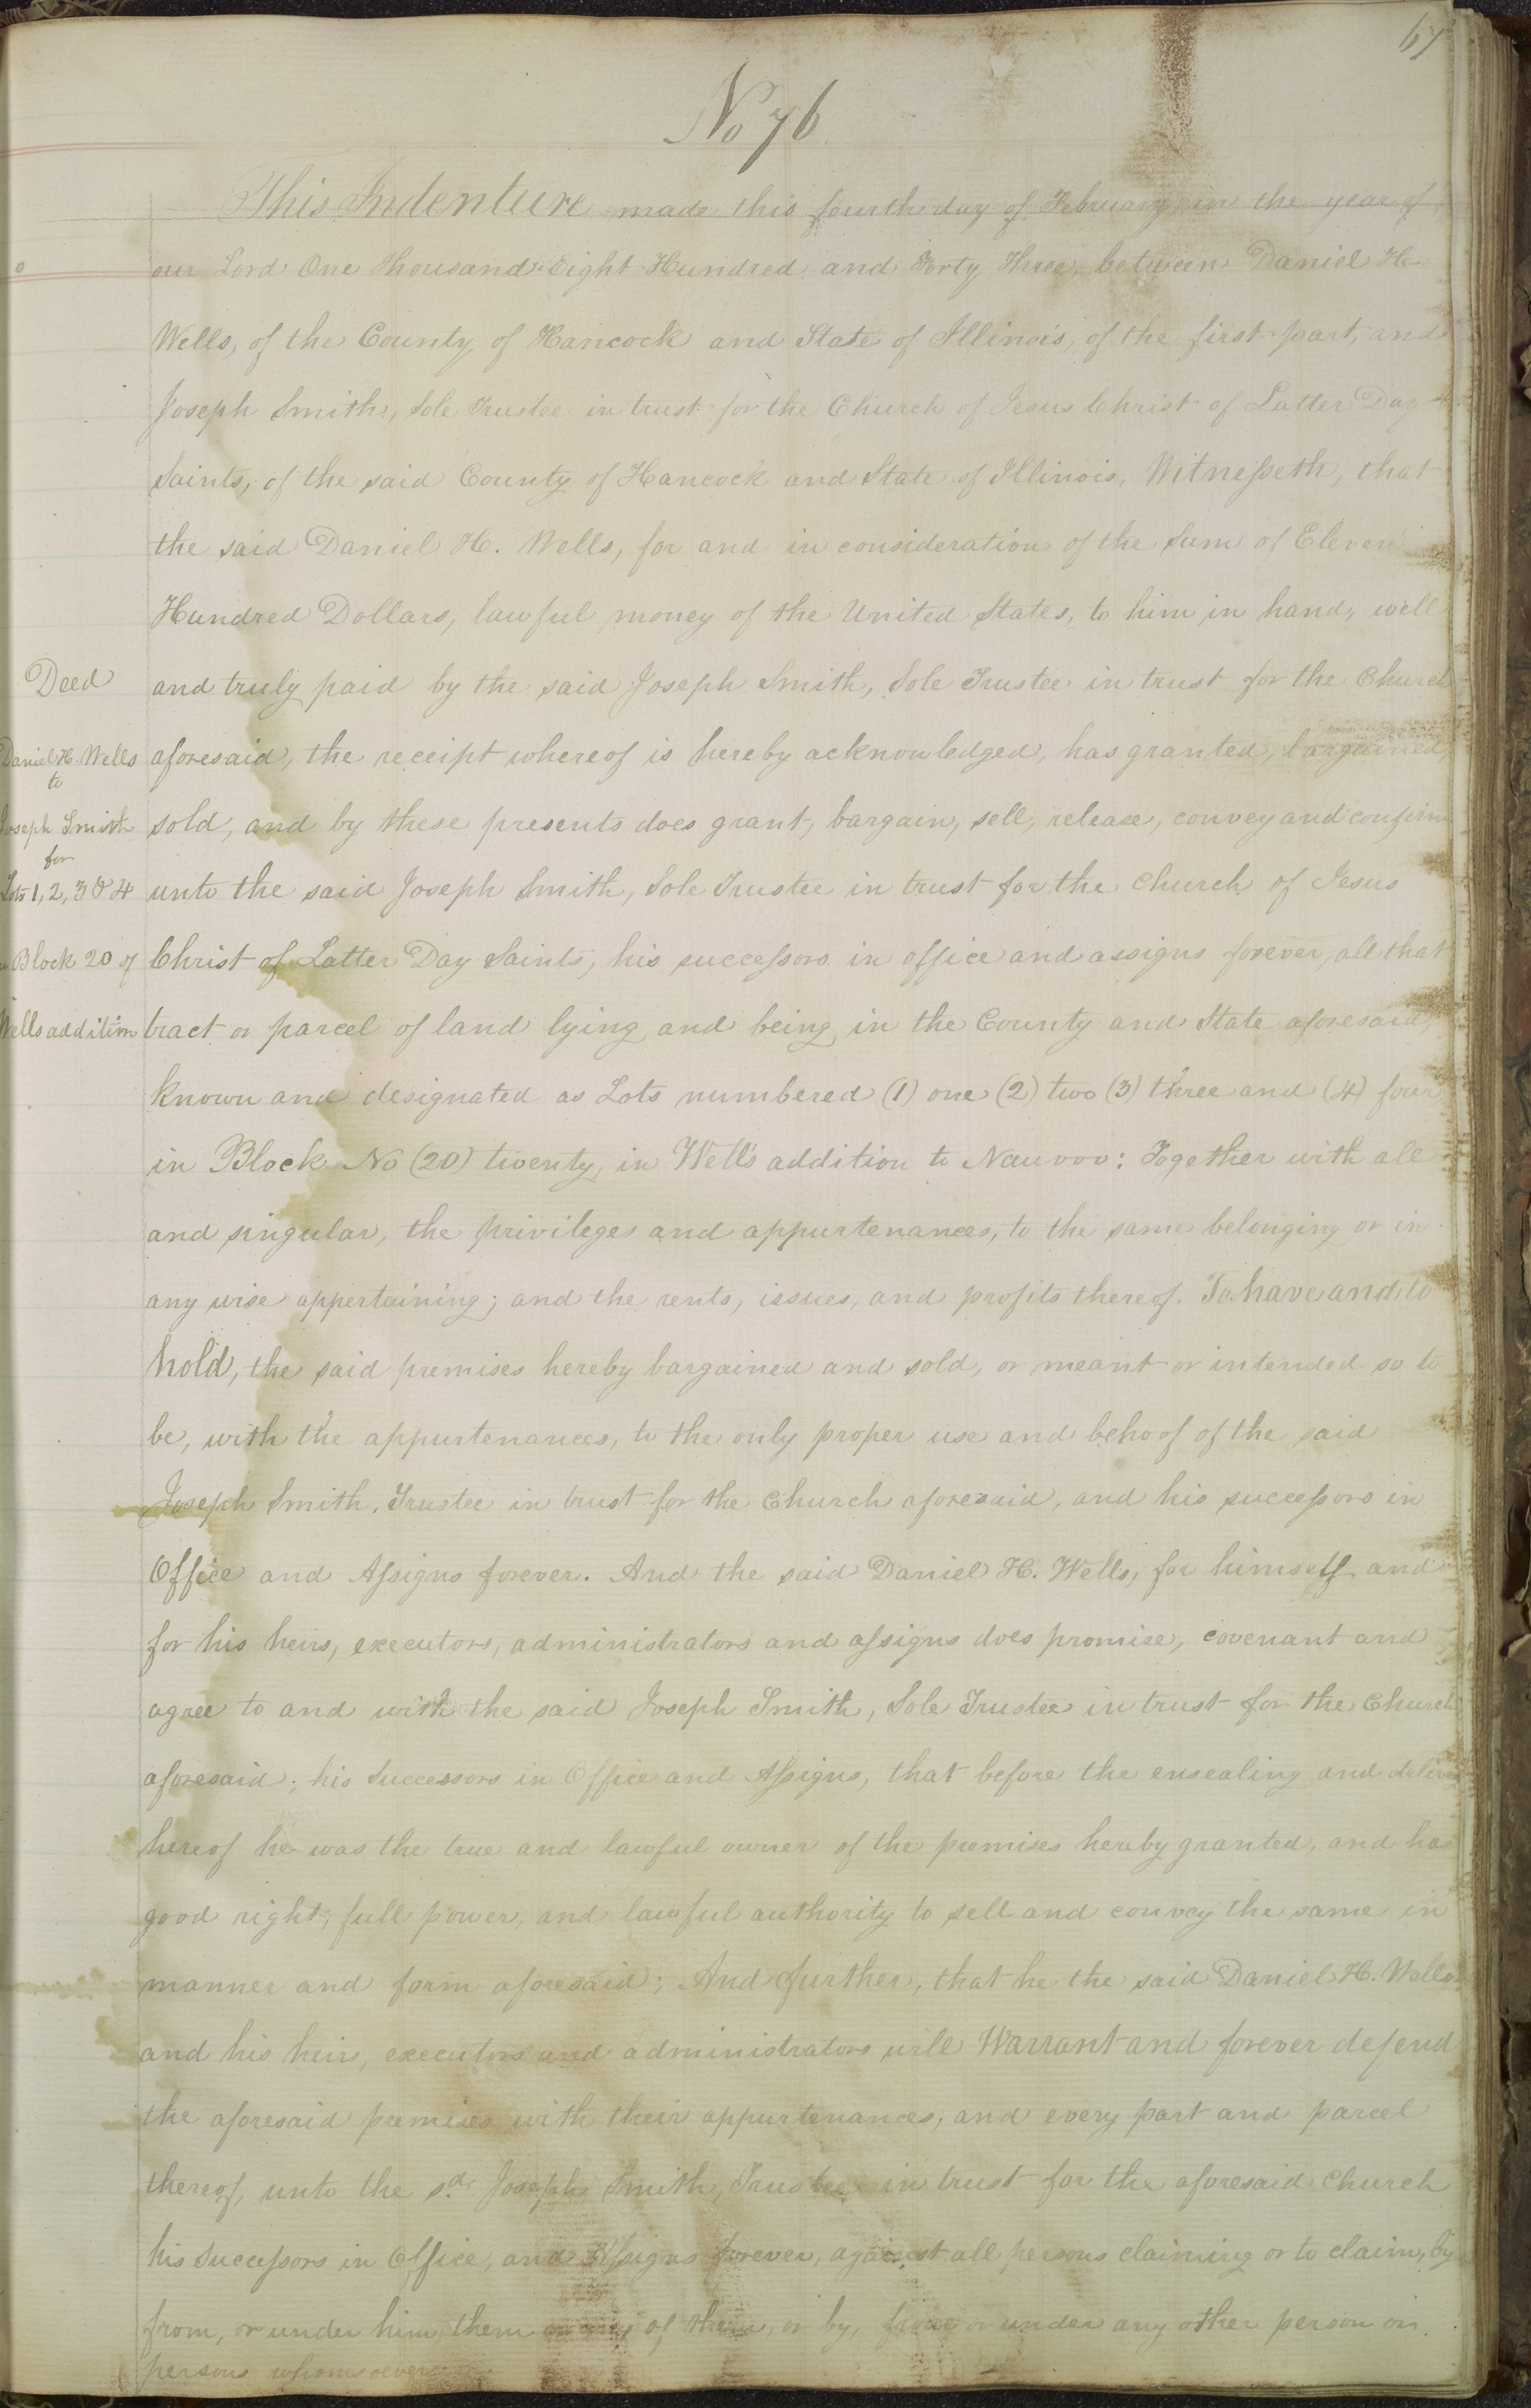 67
No 76
This Indenture made this fourth day of February, in the year of
our Lord One Thousand Eight Hundred and Forty Three, between Daniel H.
Wells, of the County of Hancock and State of Illinois, of the first part, and
Joseph Smith, Sole Trustee in trust for the Church of Jesus Christ of Latter Day
Saints, of the said County of Hancock and State of Illinois, Witnesseth, that
the said Daniel H. Wells, for and in consideration of the sum of Eleven
Hundred Dollars, lawful money of the United States, to him in hand, well
Deed
and truly paid by the said Joseph Smith, Sole Trustee in trust for the Church
Daniel H. Wells
to
aforesaid, the receipt whereof is hereby acknowledged, has granted, bargained,
Joseph Smith
for
sold, and by these presents does grant, bargain, sell, release, convey and confirm
Lots 1, 2, 3 & 4
unto the said Joseph Smith, Sole Trustee in trust for the Church of Jesus
Block 20 of
Christ of Latter Day Saints, his successors in office and assigns forever, all that
Wells addition
tract or parcel of land lying and being in the County and State aforesaid,
known and designated as Lots numbered (1) one (2) two (3) three and (4) four
in Block No (20) twenty, in Well's addition to Nauvoo: Together with all
and singular, the privileges and appurtenances, to the same belonging or in
any wise appertaining; and the rents, issues, and profits thereof. To have and to
hold, the said premises hereby bargained and sold, or meant or intended so to
be, with the appurtenances, to the only proper use and behoof of the said
Joseph Smith, Trustee in trust for the Church aforesaid, and his successors in
Office and Assigns forever. And the said Daniel H. Wells, for himself and
for his heirs, executors, administrators and assigns does promise, covenant and
agree to and with the said Joseph Smith, Sole Trustee in trust for the Church
aforesaid; his Successors in Office and Assigns, that before the ensealing and
hereof he was the true and lawful owner of the premises hereby granted, and has
good right, full power, and lawful authority to sell and convey the same in
manner and form aforesaid; And further, that he the said Daniel H. Wells
and his heirs, executors and administrators will Warrant and forever defend
the aforesaid premises with their appurtenances, and every part and parcel
thereof, unto the sd. Joseph Smith, Trustee in trust for the aforesaid Church
his Successors in Office, and Assigns forever, against all persons claiming or to claim, by
from, or under him, them or any of them, or by, from or under any other person or
persons whomsoever